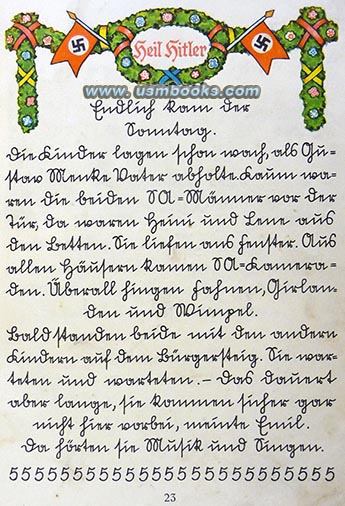 Heil Hitler
www.usmbooks.com
Endlich kam der
Sonntag.
Die Kinder lagen schon wach, als Gu-
stav Menke Vater abholte. Kaum wa-
ren die beiden SA-Männer vor der
Tür, da waren Heini und Lene aus
den Betten. Sie liefen ans Fenster. Aus
allen Häusern kamen SA-Kamera-
den. Überall hingen Fahnen, Girlan-
den und Wimpel.
Bald standen beide mit den andern
Kindern auf dem Bürgersteig. Sie war-
teten und warteten. – Das dauert
aber lange, sie kommen sicher gar
nicht hier vorbei, meinte Emil.
Da hörten sie Musik und Singen.
23